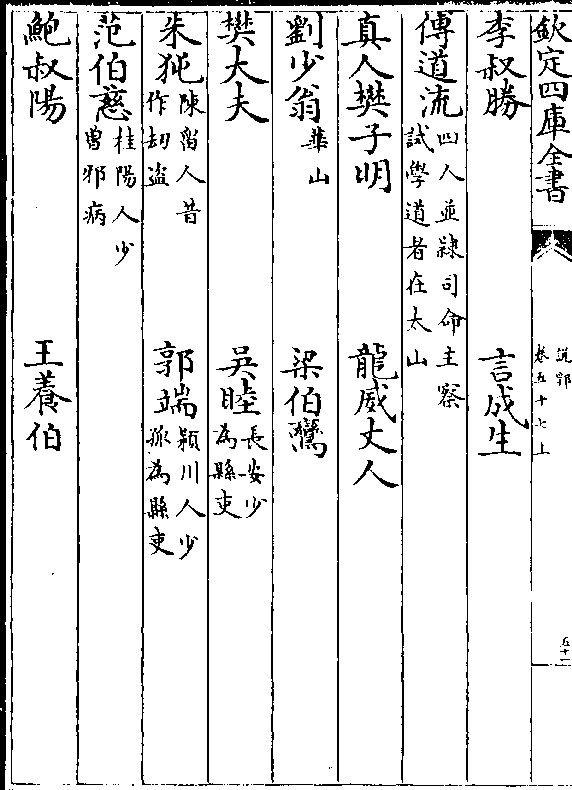 欽定四庫全書
說郛
卷五十七上
五十一
李叔勝 言成生
傅道流 四人並隷司命主察
試學道者在太山
真人樊子明 龍威丈人
劉少翁 華山 梁伯鸞
樊大夫 吳睦 長安少
為縣吏
朱㹠 陳留人昔
作刼盜 郭端 潁川人少
孤為縣吏
范伯慈 桂陽人少
曽邪病
鮑叔陽 王養伯